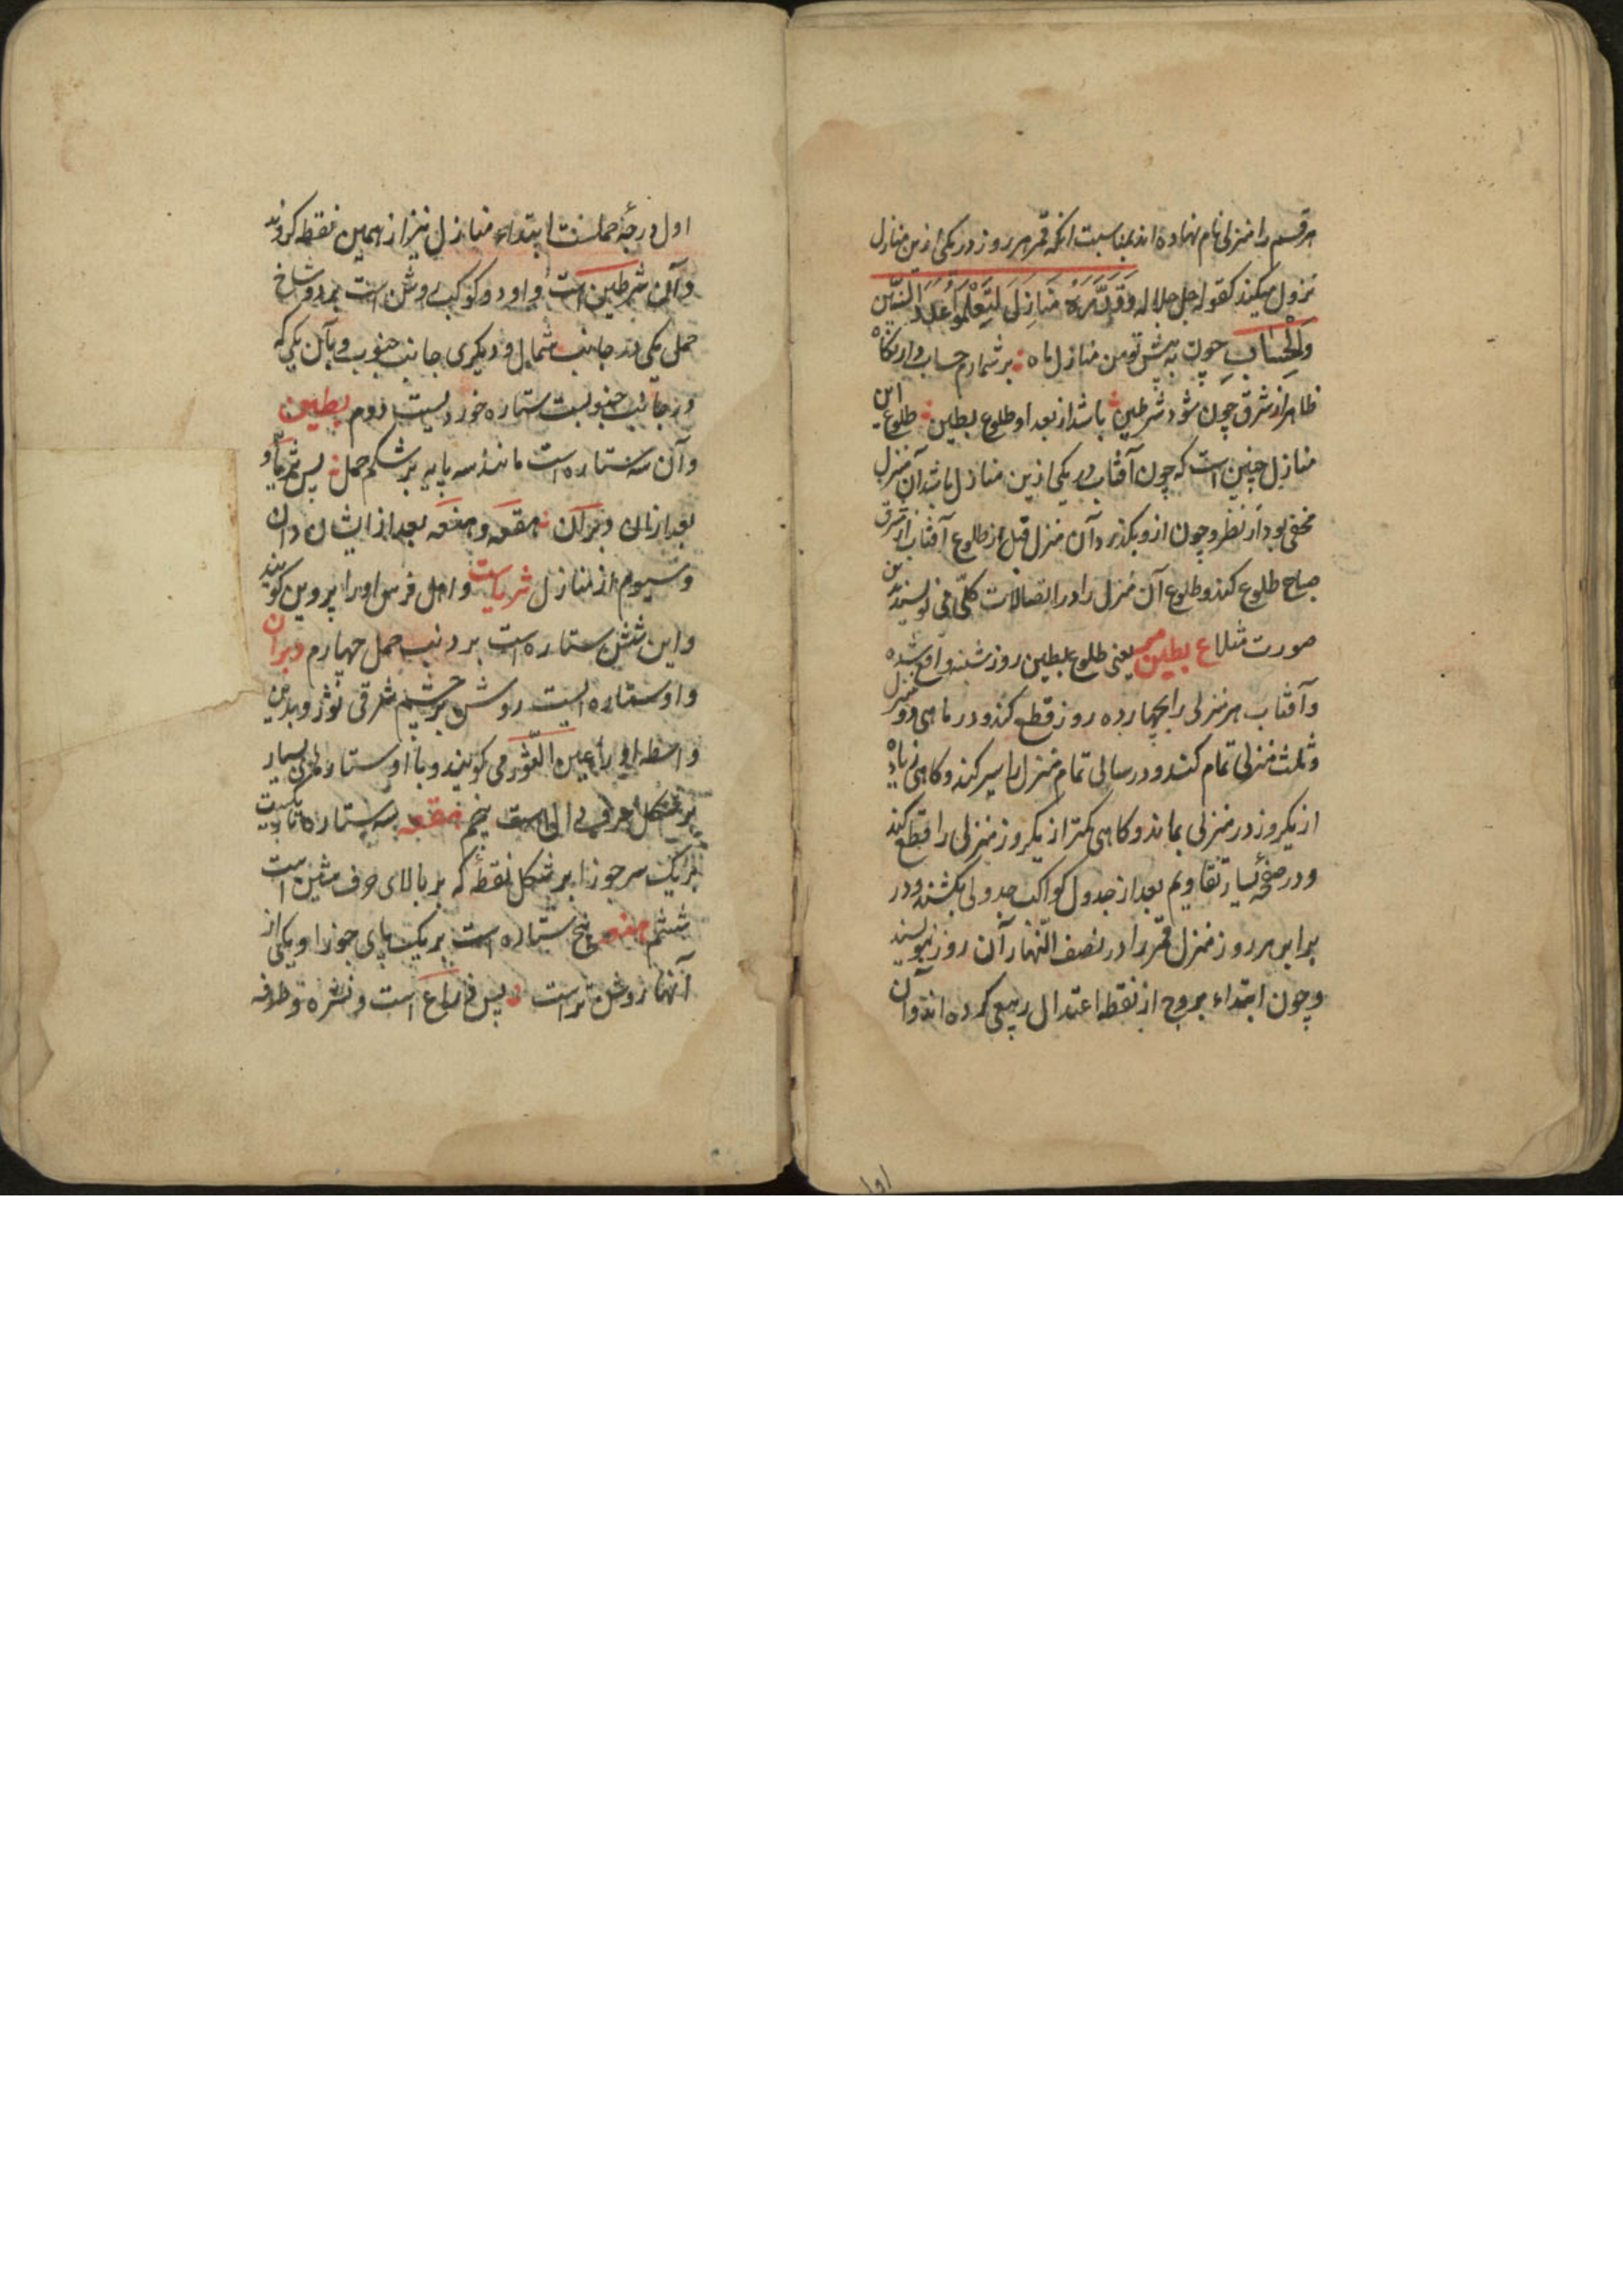 هر قسم را منزلی نام نهاده اند بمناسبت انکه قمر هر روز در یکی ازین منازل
نزول میکند کقوله جل جلاله وَقَدَّرَهُ مَنَازِلَ لِتَعْلَمُوا عَدَدَ السِّنِينَ
وَالْحِسَابَ چون به پیش تو من منازل ماه بر شمارم حساب دار نکاه
ظاهر از شرق چون شود شرطین باشد از بعد او طلوع بطین طلوع این
منازل چنین است که چون آفتاب در یکی ازین منازل باشد آن منزل
مخفی بود از نظر و چون ازو بکذرد آن منزل قبل از طلوع آفتاب از شرق
صباح طلوع کند و طلوع آن منزل را در اتصالات کلّی می نویسند بدین
صورت مثلا ع بطین یعنی طلوع بطین روز شنبه واقع شده
و آفتاب هر منزلی را بچهارده روز قطع کند و در ماهی دو منزل
و ثلث منزلی تمام کند و در سالی تمام منزل را سیر کند و کاهی زیاده
از یکروز در منزلی بماند و کاهی کمتر از یکروز منزلی را قطع کند
و در صفحهٔ یسار تقاویم بعد از جدول کواکب جدولی بکشند و در
برابر هر روز منزل قمر را در نصف النّهار آن روز بنویسند
و چون ابتداء بروج از نقطه اعتدال ربیعی کرده اند و آن
اول درجهٔ حملست ابتداء منازل نیز از همین نقطه کردند
و آن شرطین است و او دو کوکب روشن است بر دو شاخ
حمل یکی در جانب شمال و دیکری جانب جنوب و بآن یکی که
در جانب جنوبست ستاره خوردیست دوم بطین
و آن سه ستاره است مانند سه پایه بر شکم حمل پس ثریّا و
بعد ازان دبران هقعه و هنعه بعد از ایشان دان
و سیوم از منازل ثریاست و اهل فرس او را پروین کویند
و این شش ستاره است بر دنب حمل چهارم دبران
و او ستاره ایست روشن بر چشم شرقی ثور و بدین
واسطه او را عین الثّور می کویند و با او ستارهای بسیار
بر شکل حرفی است پنجم هقعه سه ستاره تاریکست
بر یک سر جوزا بر شکل نقطهٔ که بر بالای حرف شین است
ششم هنعه پنج ستاره است بر یک پای جوزا و یکی از
آنها روشن تر است پس ذراع است و نثره و طرفه